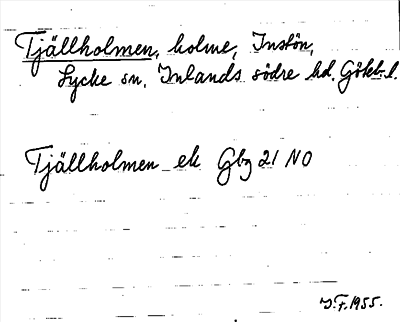 Tjällholmen, holme, Instön,
Lycke sn, Inlands södre hd, Göteb. l.
Tjällholmen ek Gbg 21 NO
J.F. 1955.